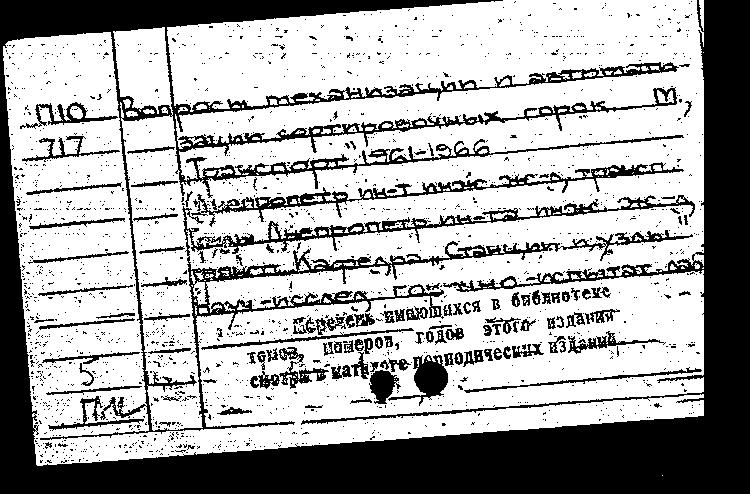 П10 Вопросы механизации и автомати-
717 зации сортировочных горок. М.,
"Транспорт", 1961-1966
(Днепропетр ин-т инж. ж-д. трансп.
Труды Днепропетр ин-та инж. ж-д.
трансп. Кафедра „Станции и узлы"
Науч-исслед. горочно-испытат. лаб
Перечень имеющихся в библиотеке
томов, номеров, годов этого издания
смотри в каталоге периодических изданий
5